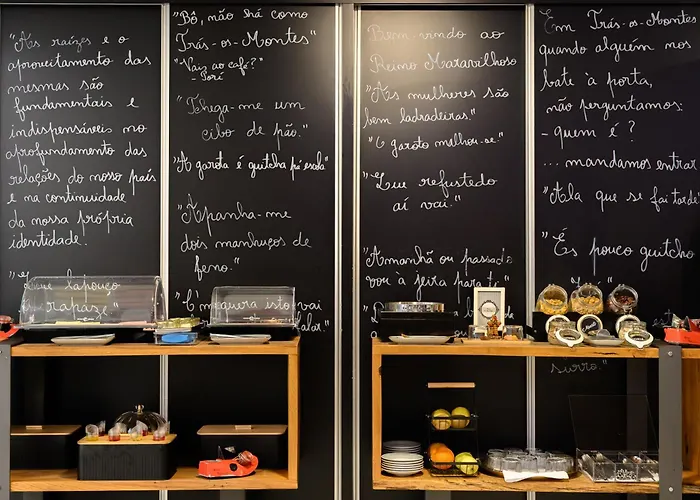 "As raízes e o
aproveitamento das
mesmas são
fundamentais e
indispensáveis no
aprofundamento das
relações do nosso país
e na continuidade
da nossa própria
identidade.
lapouço
rapaze"
"Bô, não há como
Trás-os-Montes"
"Vais ao café?"
"Chega-me um
cibo de pão."
"A garota é guitcha pá escola"
"Apanha-me
dois manhuços de
feno."
isto vai
Bem-vindo ao
Reino Maravilhoso
"As mulheres são
bem ladradeiras"
"O garoto milhou-se."
"Que refustedo
aí vai."
"Amanhã ou passado
vou à jeira para ti"
Em Trás-os-Montes
quando alguém nos
bate à porta,
não perguntamos:
- quem é?
... mandamos entrar
"Ala que se fai tarde"
"És pouco guitcho
surro."